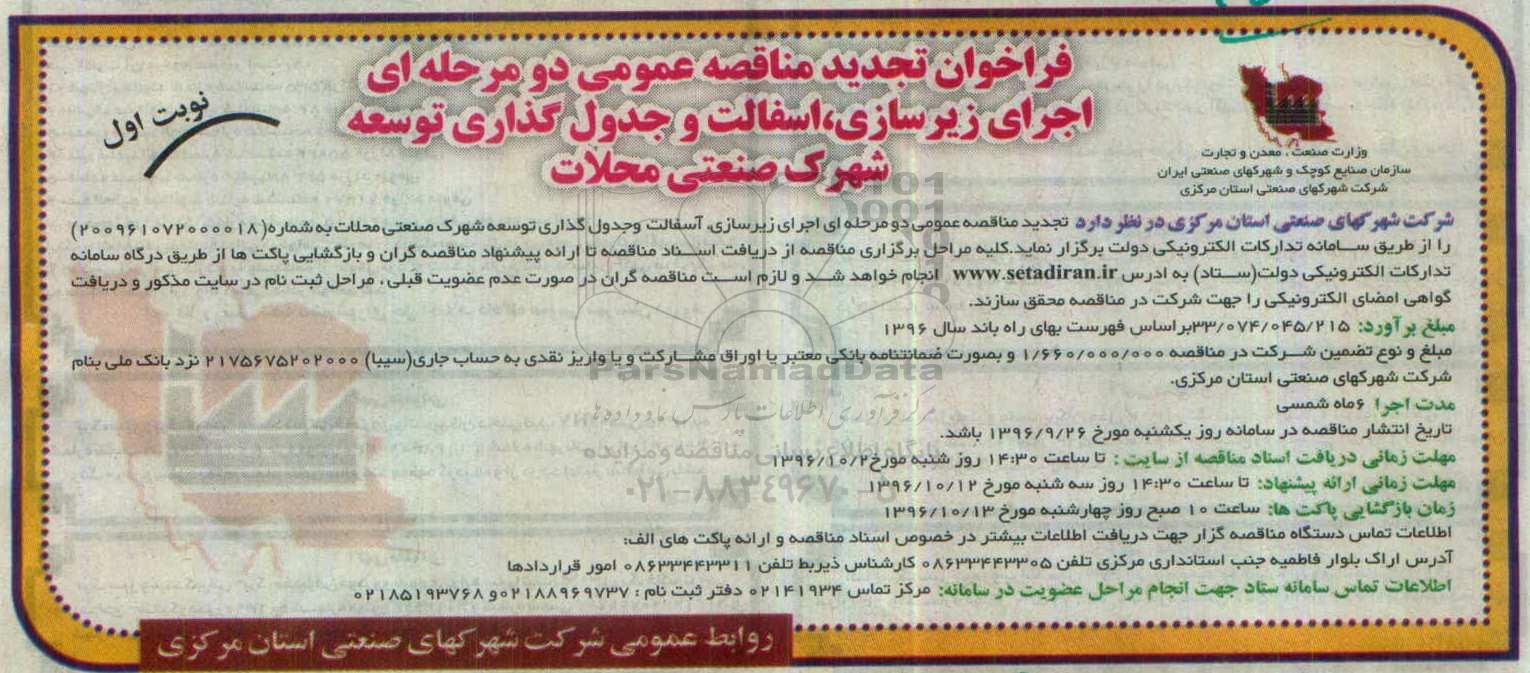 فراخوان تجدید مناقصه عمومی دو مرحله ای
اجرای زیرسازی،اسفالت و جدول گذاری توسعه
شهرک صنعتی محلات
نوبت اول
وزارت صنعت ، معدن و تجارت
سازمان صنایع کوچک و شهرکهای صنعتی ایران
شرکت شهرکهای صنعتی استان مرکزی
شرکت شهرکهای صنعتی استان مرکزی در نظر دارد تجدید مناقصه عمومی دو مرحله ای اجرای زیرسازی، آسفالت وجدول گذاری توسعه شهرک صنعتی محلات به شماره(۲۰۰۹۶۱۰۷۲۰۰۰۰۱۸)
را از طریق سامانه تدارکات الکترونیکی دولت برگزار نماید.کلیه مراحل برگزاری مناقصه از دریافت اسناد مناقصه تا ارائه پیشنهاد مناقصه گران و بازگشایی پاکت ها از طریق درگاه سامانه
تدارکات الکترونیکی دولت(ستاد) به ادرس www.setadiran.ir انجام خواهد شد و لازم است مناقصه گران در صورت عدم عضویت قبلی ، مراحل ثبت نام در سایت مذکور و دریافت
گواهی امضای الکترونیکی را جهت شرکت در مناقصه محقق سازند.
مبلغ برآورد: ۳۳/۰۷۴/۰۴۵/۲۱۵براساس فهرست بهای راه باند سال ۱۳۹۶
مبلغ و نوع تضمین شرکت در مناقصه ۱/۶۶۰/۰۰۰/۰۰۰ و بصورت ضمانتنامه بانکی معتبر یا اوراق مشارکت و یا واریز نقدی به حساب جاری(سیبا) ۲۱۷۵۶۷۵۲۰۲۰۰۰ نزد بانک ملی بنام
شرکت شهرکهای صنعتی استان مرکزی.
مدت اجرا ۶ماه شمسی
تاریخ انتشار مناقصه در سامانه روز یکشنبه مورخ ۱۳۹۶/۹/۲۶ باشد.
مهلت زمانی دریافت اسناد مناقصه از سایت : تا ساعت ۱۴:۳۰ روز شنبه مورخ۱۳۹۶/۱۰/۲
مهلت زمانی ارائه پیشنهاد: تا ساعت ۱۴:۳۰ روز سه شنبه مورخ ۱۳۹۶/۱۰/۱۲
زمان بازگشایی پاکت ها: ساعت ۱۰ صبح روز چهارشنبه مورخ ۱۳۹۶/۱۰/۱۳
اطلاعات تماس دستگاه مناقصه گزار جهت دریافت اطلاعات بیشتر در خصوص اسناد مناقصه و ارائه پاکت های الف:
آدرس اراک بلوار فاطمیه جنب استانداری مرکزی تلفن ۰۸۶۳۳۴۴۳۳۰۵ کارشناس ذیربط تلفن ۰۸۶۳۳۴۴۳۳۱۱ امور قراردادها
اطلاعات تماس سامانه ستاد جهت انجام مراحل عضویت در سامانه: مرکز تماس ۰۲۱۴۱۹۳۴ دفتر ثبت نام : ۰۲۱۸۸۹۶۹۷۳۷و ۰۲۱۸۵۱۹۳۷۶۸
روابط عمومی شرکت شهرکهای صنعتی استان مرکزی
ParsNamadData
مرکز فرآوری اطلاعات پارس نماد داده ها
پایگاه اطلاع رسانی مناقصه و مزایده
۰۲۱-۸۸۳۴۹۶۷۰-۵